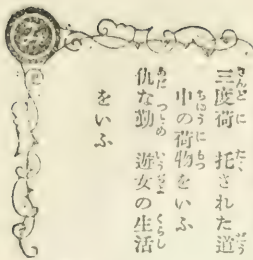 三度荷 托された道
中の荷物をいふ
仇な勤 遊女の生活
をいふ